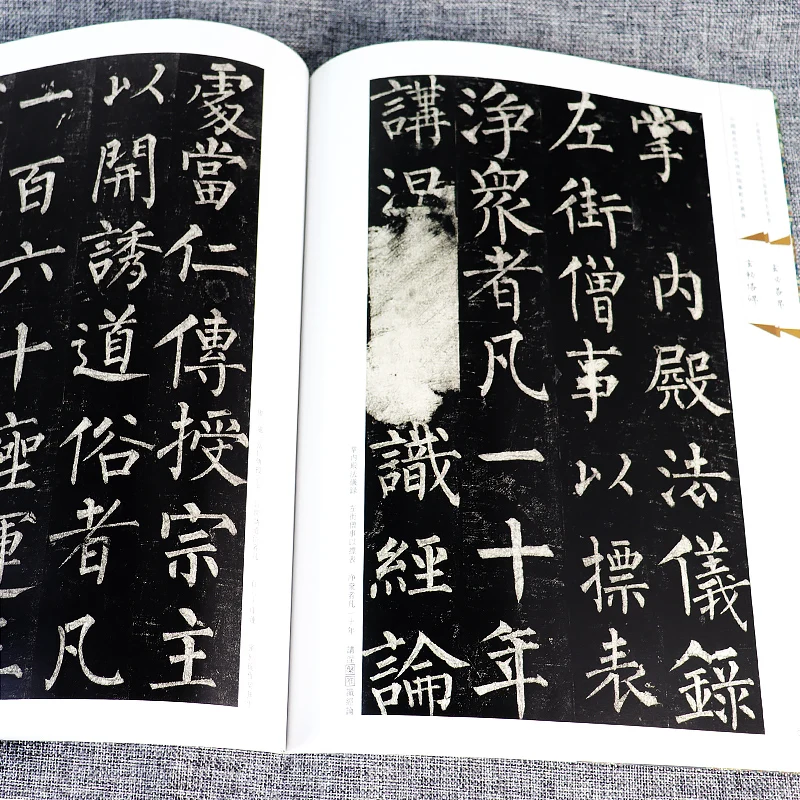 玄秘塔碑
掌内殿法儀錄
左街僧事以摽表
淨衆者凡一十年
講涅 識經論
掌内殿法儀録 左街僧事以標表 淨衆者凡一十年 講涅 識經論
處當仁傳授宗主
以開誘道俗者凡
一百六十座運三